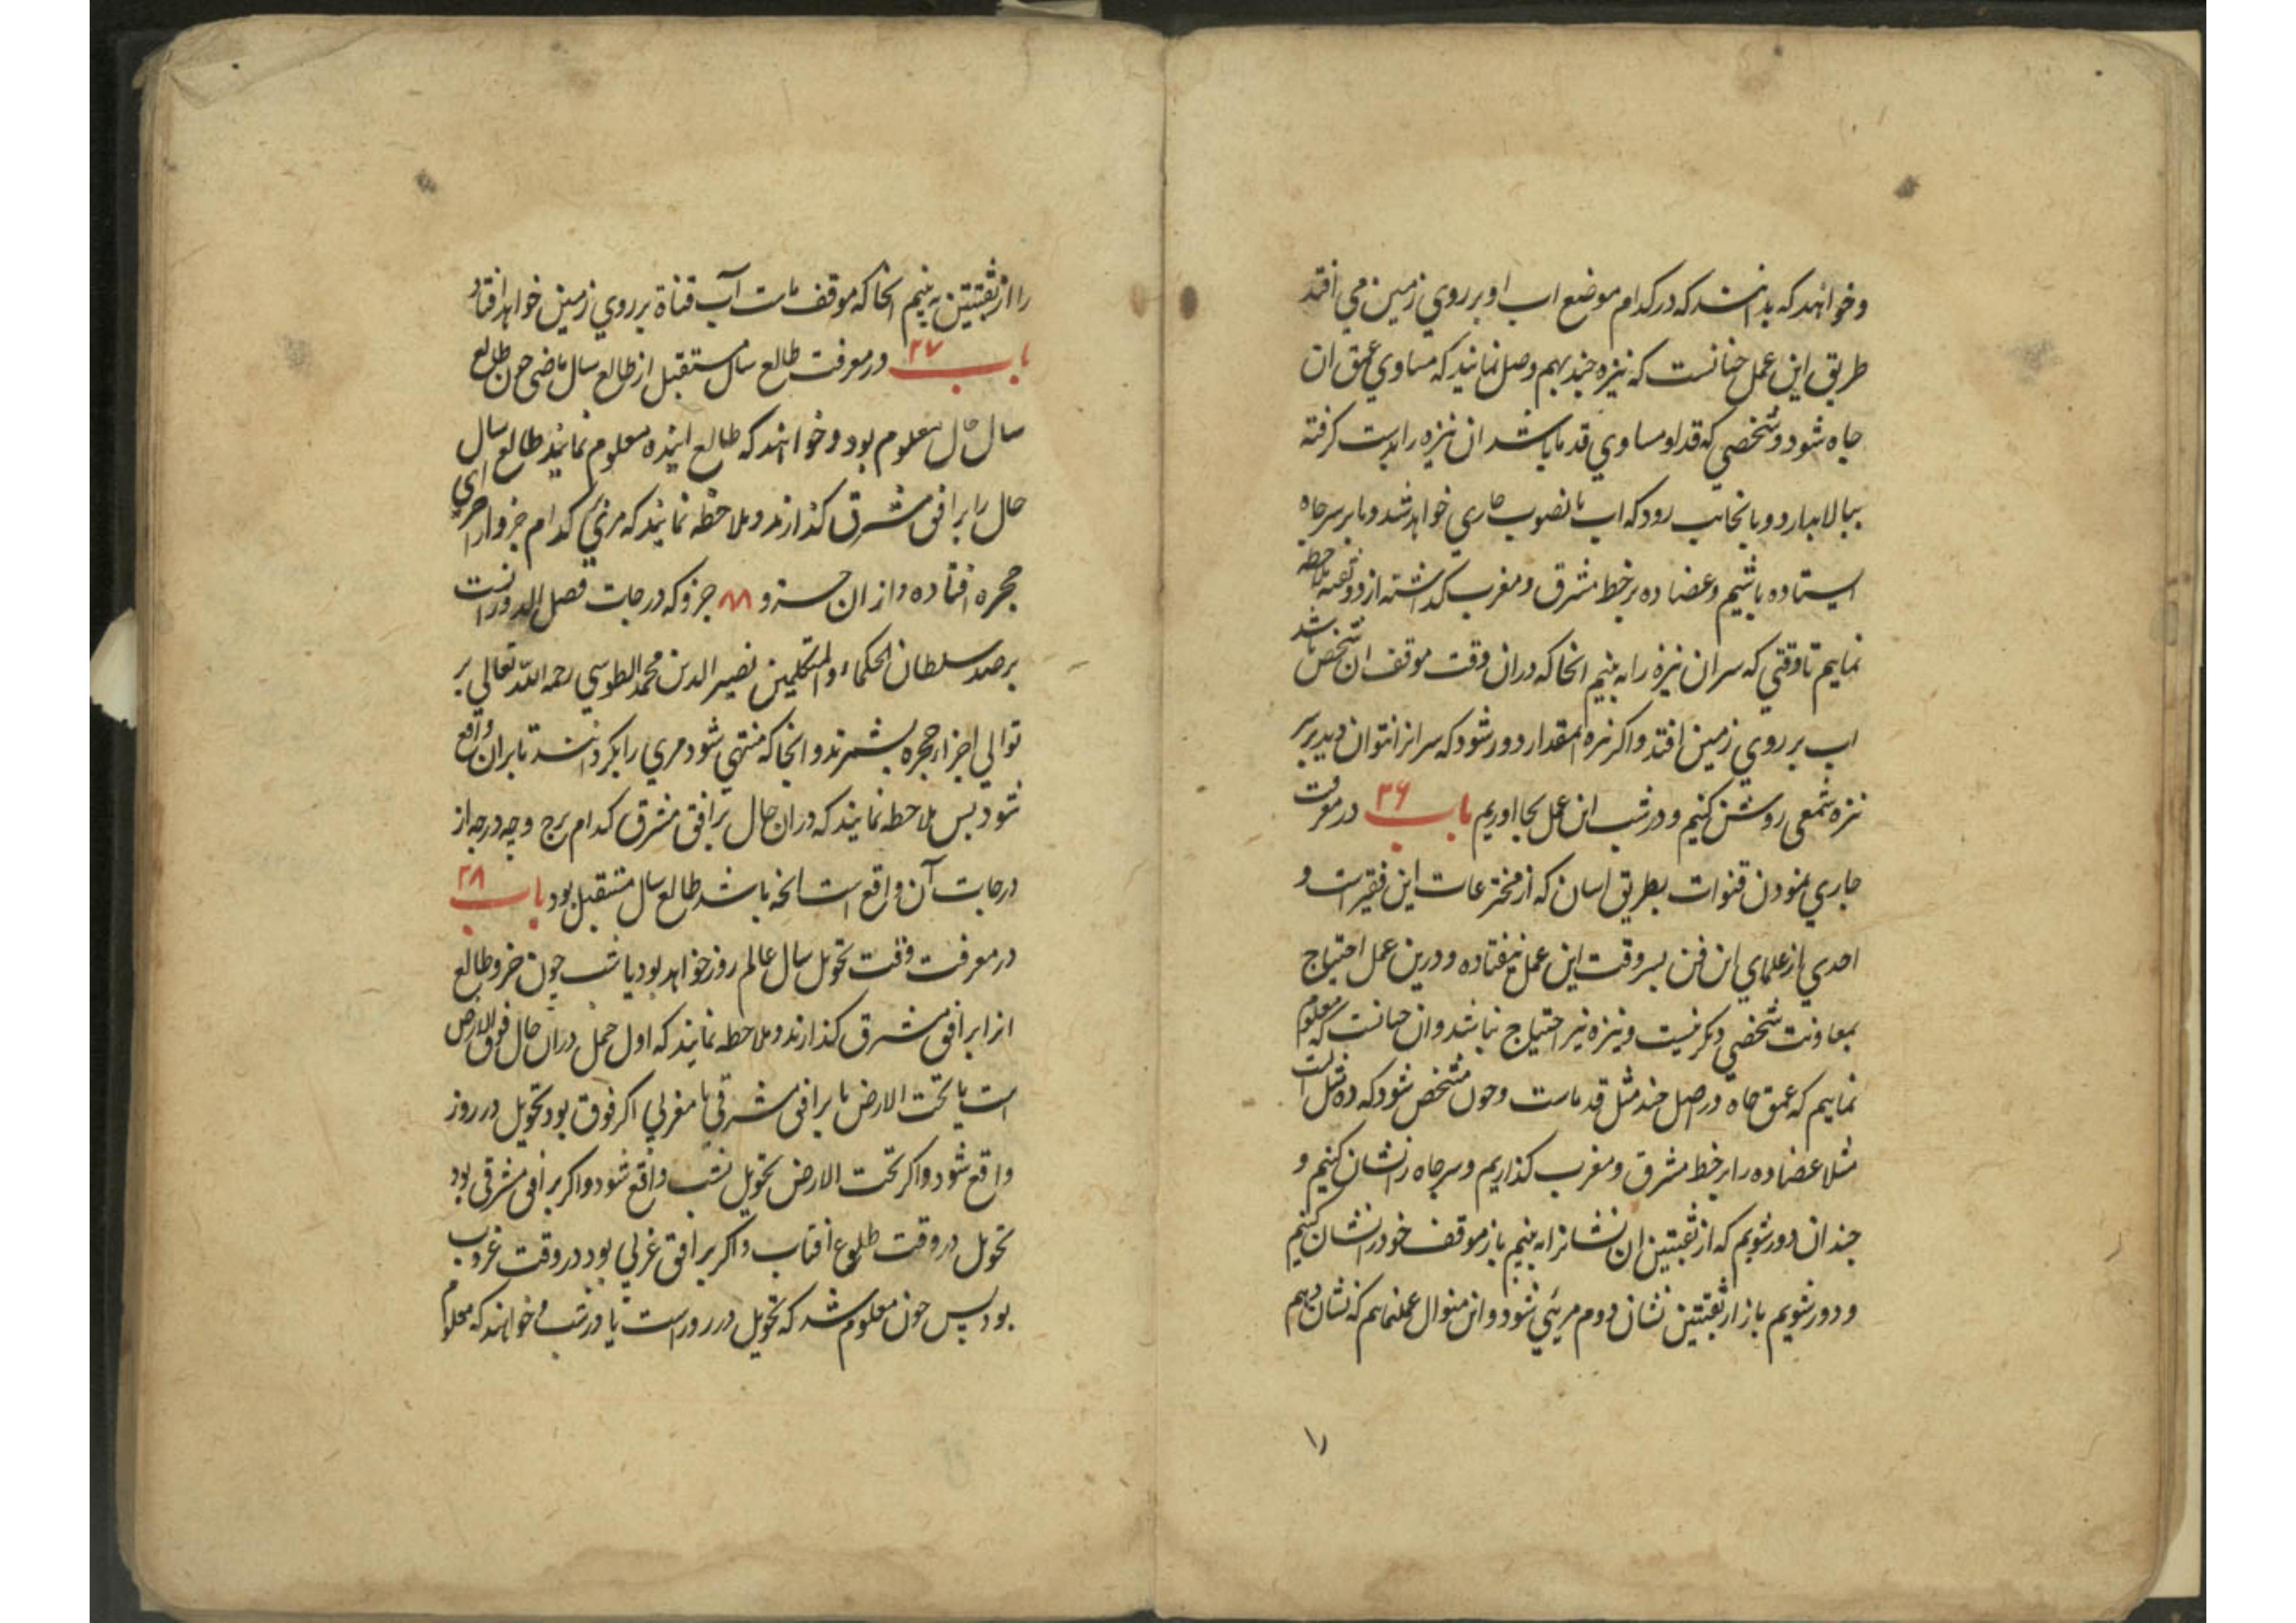 وخواهند که بدانند که در کدام موضع اب او بر روي زمين مي افتد
طريق اين عمل چنانست که نيزه چند بهم وصل نمايند که مساوي عمق ان
چاه شود و شخصي که قد او مساوي قد ما باشد ان نيزه را بدست کرفته
ببالا بدارد و بانجانب رود که اب بانصوب جاري خواهد شد و ما بر سر چاه
ايستاده باشيم وعضاده بر خط مشرق ومغرب کذاشته از دو ثقبه ملاحظه
نماييم تا وقتي که سر ان نيزه را به بينيم انجا که دران وقت موقف ان شخص باشد
اب بر روي زمين افتد واکر نيزه انمقدار دور شود که سر انرا نتوان ديد بر سر
نيزه شمعى روشن کنيم و در شب اين عمل بجا اوريم باب ۳۶ در معرفت
جاري نمودن قنوات بطريق اسان که از مخترعات اين فقيرست و
احدي از علماي اين فن بسر وقت اين عمل نيفتاده ودرين عمل احتياج
بمعاونت شخصي ديکر نيست ونيزه نيز احتياج نباشد وان چنانست که معلوم
نماييم که عمق چاه در اصل چند مثل قد ماست وچون مشخص شود که ده مثل است
مثلا عضاده را بر خط مشرق ومغرب کذاريم وسر چاه را نشان کنيم و
چندان دور شويم که از ثقبتين ان نشانرا به بينيم باز موقف خود را نشان کنيم
ودور شويم باز از ثقبتين نشان دوم مريي شود واين منوال عمل نماييم که نشان دهم
را از ثقبتين به بينيم انجا که موقف ماست آب قناة بر روي زمين خواهد افتاد
باب ۳۷ در معرفت طالع سال مستقبل از طالع سال ماضى چون طالع
سال حال معلوم بود وخواهند که طالع اينده معلوم نمايند طالع سال
حال را بر افق مشرق کذارند وملاحظه نمايند که مري بر کدام جزو از اجزاي
حجره افتاده و از ان جزو ۸۸ جزو که درجات فصل الدورانست
برصد سلطان الحکماء والمتکلمين نصير الدين محمد الطوسي رحمه الله تعالي بر
توالي اجزاء حجره بشمرند وانجا که منتهي شود مري را بکردانند تا بران واقع
شود پس ملاحظه نمايند که دران حال بر افق مشرق کدام برج وچه درجه از
درجات آن واقع است انچه باشد طالع سال مستقبل بود باب ۳۸
در معرفت وقت تحويل سال عالم روز خواهد بود يا شب چون جزو طالع
انرا بر افق مشرق کذارند وملاحظه نمايند که اول حمل دران حال فوق الارض
است يا تحت الارض يا بر افق مشرقي يا مغربي اکر فوق بود تحويل در روز
واقع شود واکر تحت الارض تحويل شب واقع شود واکر بر افق مشرقى بود
تحويل در وقت طلوع افتاب واکر بر افق غربي بود در وقت غروب
بود پس چون معلوم شد که تحويل در روزاست يا در شب وخواهند که معلوم